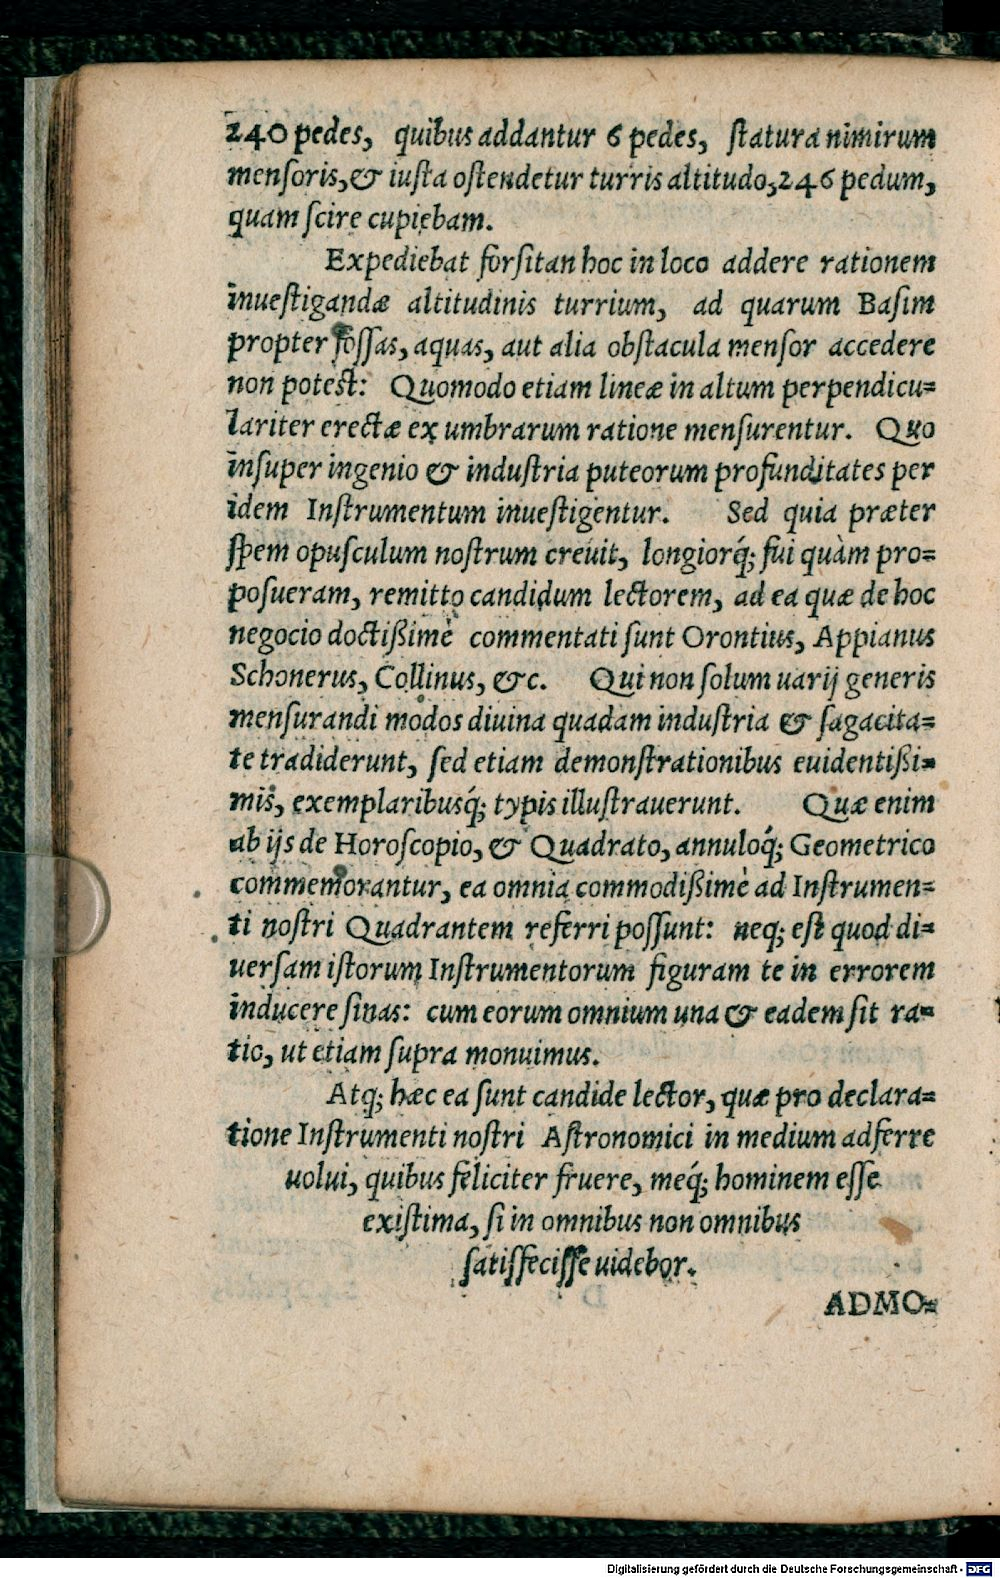 240 pedes, quibus addantur 6 pedes, ſtatura nimirum
menſoris, & iuſta oſtendetur turris altitudo, 246 pedum,
quam ſcire cupiebam.
Expediebat forſitan hoc in loco addere rationem
inueſtigandæ altitudinis turrium, ad quarum Baſim
propter foſſas, aquas, aut alia obſtacula menſor accedere
non poteſt: Quomodo etiam lineæ in altum perpendicu=
lariter erectæ ex umbrarum ratione menſurentur. Quo
inſuper ingenio & induſtria puteorum profunditates per
idem Inſtrumentum inueſtigentur. Sed quia præter
ſpem opuſculum noſtrum creuit, longiorq́; fui quàm pro=
poſueram, remitto candidum lectorem, ad ea quæ de hoc
negocio doctißimè commentati ſunt Orontius, Appianus
Schonerus, Collinus, &c. Qui non ſolum uarij generis
menſurandi modos diuina quadam induſtria & ſagacita=
te tradiderunt, ſed etiam demonſtrationibus euidentißi=
mis, exemplaribusq́; typis illuſtrauerunt. Quæ enim
ab ijs de Horoſcopio, & Quadrato, annuloq́; Geometrico
commemorantur, ea omnia commodißimè ad Inſtrumen=
ti noſtri Quadrantem referri poſſunt: neq; eſt quod di=
uerſam iſtorum Inſtrumentorum figuram te in errorem
inducere ſinas: cum eorum omnium una & eadem ſit ra=
tio, ut etiam ſupra monuimus.
Atq; hæc ea ſunt candide lector, quæ pro declara=
tione Inſtrumenti noſtri Aſtronomici in medium adferre
uolui, quibus feliciter fruere, meq́; hominem eſſe
exiſtima, ſi in omnibus non omnibus
ſatiſfeciſſe uidebor.
ADMO=
Digitalisierung gefördert durch die Deutsche Forschungsgemeinschaft - DFG